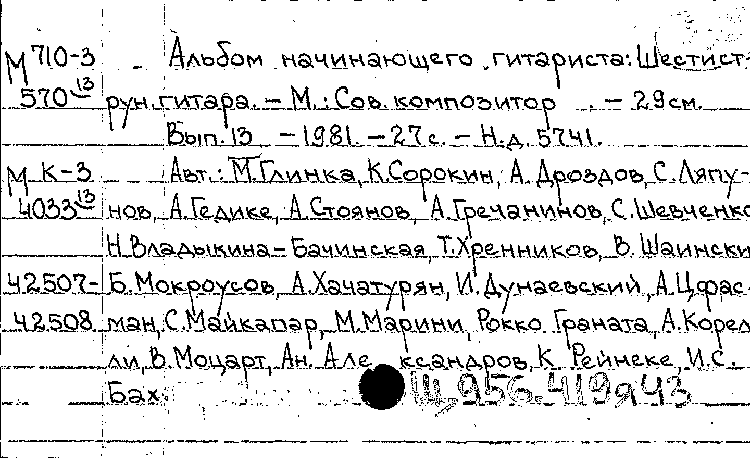 М 710-3 Альбом начинающего гитариста: Шестист-
570 13 рун. гитара. – М.: Сов. композитор – 29 см.
Вып. 13 – 1981. – 27 с. – Н.д. 5741.
М К-3 Авт.: М. Глинка, К. Сорокин, А. Дроздов, С. Ляпу-
4033 13 нов, А. Гедике, А. Стоянов, А. Гречанинов, С. Шевченко
Н. Владыкина-Бачинская, Т. Хренников, В. Шаински
42507- Б. Мокроусов, А. Хачатурян, И. Дунаевский, А. Цфас-
42508 ман, С. Майкапар, М. Марини, Рокко Граната, А. Корел
ли, В. Моцарт, Ан. Александров, К. Рейнеке, И.С.
Бах. Щ 956.419я43